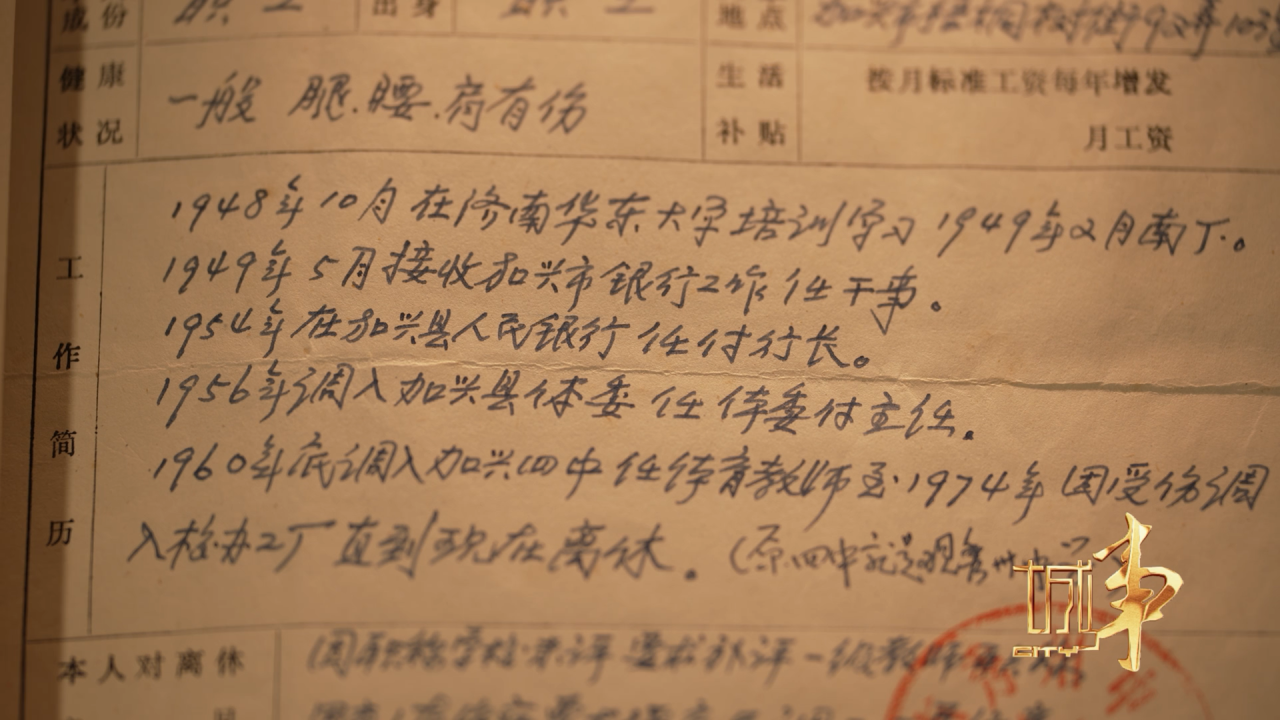 成份 职工 出身 职工 地点 加兴市梧桐树街92弄10号
健康 一般 腿.腰.肩有伤 生活 按月标准工资每年增发
状况 补贴 月工资
1948年10月在济南华东大学培训学习 1949年2月南下。
1949年5月接收加兴市银行工作 任干事。
1954年在加兴县人民银行 任付行长。
1956年调入加兴县体委 任体委付主任。
1960年底调入加兴四中任体育教师至1974年因受伤调
入校办工厂直到现在离休。(原四中就是现秀州中
工作简历
本人对离休
城事
CITY